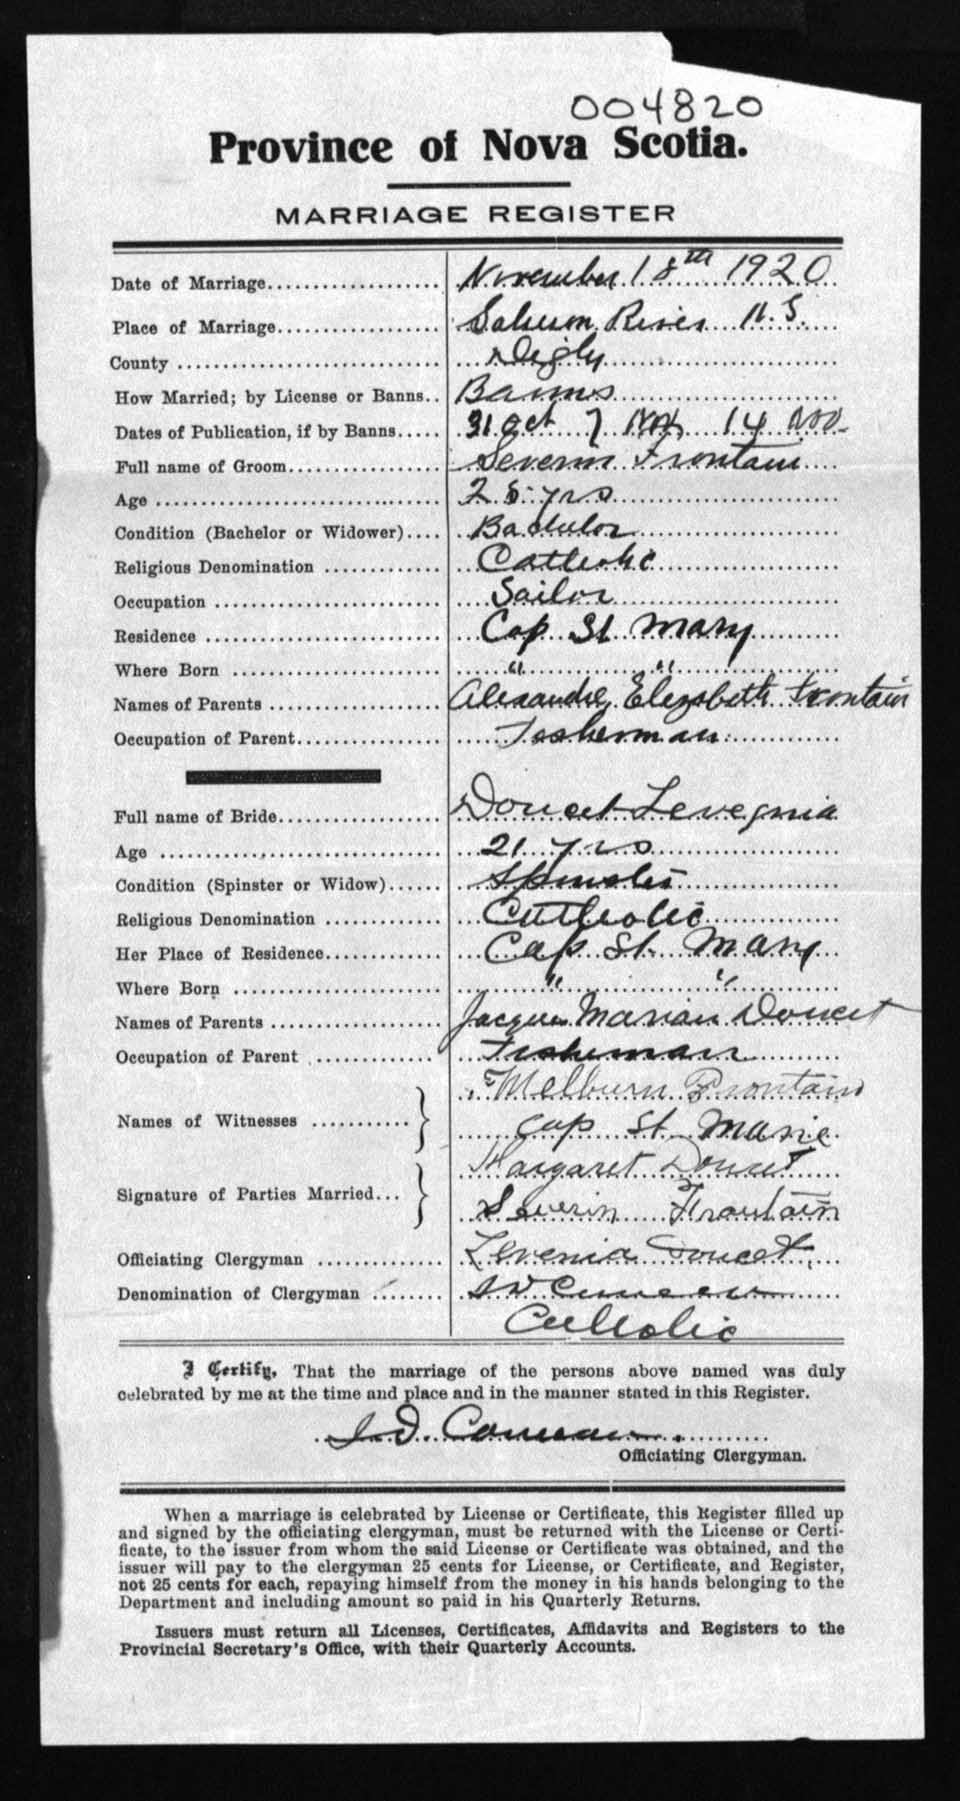 004820
Province of Nova Scotia.
MARRIAGE REGISTER
Date of Marriage November 18th 1920
Place of Marriage Salmon River N.S.
County Digby
How Married; by License or Banns Banns
Dates of Publication, if by Banns 31 Oct 7 Nov 14 Nov
Full name of Groom Severin Frontain
Age 25 yrs
Condition (Bachelor or Widower) Bachelor
Religious Denomination Catholic
Occupation Sailor
Residence Cap St Mary
Where Born " "
Names of Parents Alexandre, Elizabeth Frontain
Occupation of Parent Fisherman
Full name of Bride Doucet Levegnia
Age 21 yrs
Condition (Spinster or Widow) Spinster
Religious Denomination Catholic
Her Place of Residence Cap St. Mary
Where Born " "
Names of Parents Jacques Marian Doucet
Occupation of Parent Fisherman
Melburn Frontain
Names of Witnesses Cap St Marie
Margaret Doucet
Signature of Parties Married Severin Frontain
Officiating Clergyman Levenia Doucet
Denomination of Clergyman
Catholic
I Certify, That the marriage of the persons above named was duly
celebrated by me at the time and place and in the manner stated in this Register.
Officiating Clergyman.
When a marriage is celebrated by License or Certificate, this Register filled up
and signed by the officiating clergyman, must be returned with the License or Certi-
ficate, to the issuer from whom the said License or Certificate was obtained, and the
issuer will pay to the clergyman 25 cents for License, or Certificate, and Register,
not 25 cents for each, repaying himself from the money in his hands belonging to the
Department and including amount so paid in his Quarterly Returns.
Issuers must return all Licenses, Certificates, Affidavits and Registers to the
Provincial Secretary's Office, with their Quarterly Accounts.